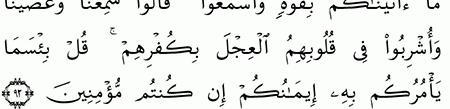 مَآ ءَاتَيْنَٰكُم بِقُوَّةٍ وَٱسْمَعُوا۟ ۖ قَالُوا۟ سَمِعْنَا وَعَصَيْنَا
وَأُشْرِبُوا۟ فِى قُلُوبِهِمُ ٱلْعِجْلَ بِكُفْرِهِمْ ۚ قُلْ بِئْسَمَا
يَأْمُرُكُم بِهِۦٓ إِيمَٰنُكُمْ إِن كُنتُم مُّؤْمِنِينَ ٩٣